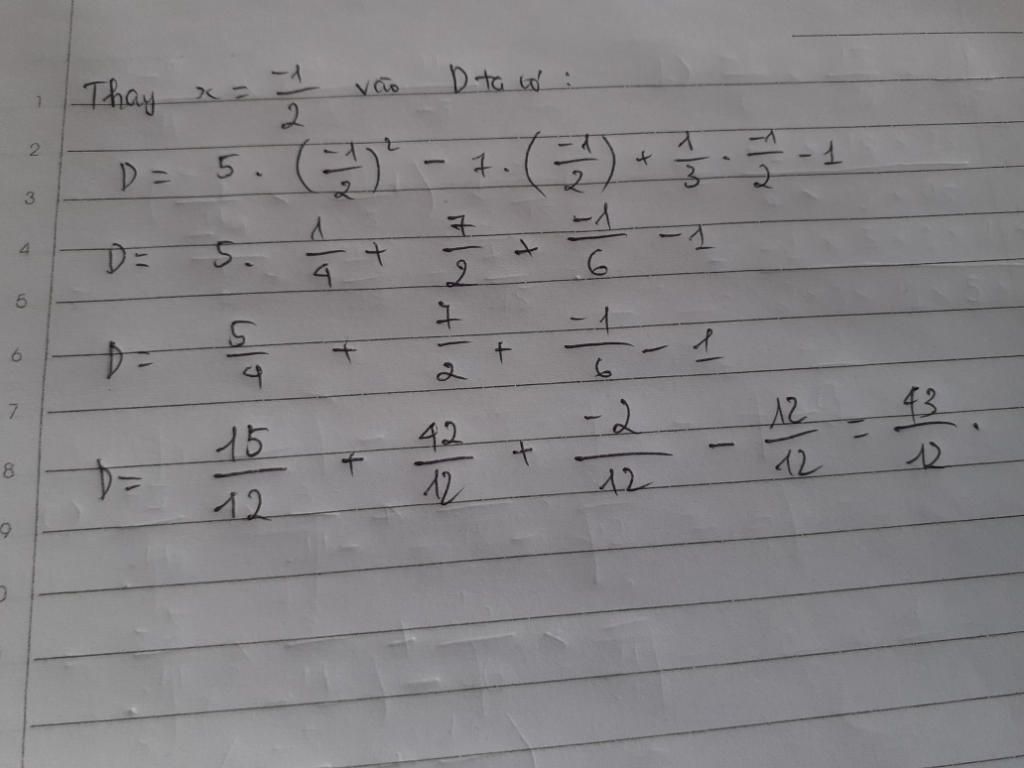 1 Thay x = -1/2 vào D ta có :
2 D = 5 . (-1/2)² - 7 . (-1/2) + 1/3 . -1/2 - 1
3
4 D = 5 . 1/4 + 7/2 + -1/6 - 1
5
6 D = 5/4 + 7/2 + -1/6 - 1
7
8 D = 15/12 + 42/12 + -2/12 - 12/12 = 43/12 .
9